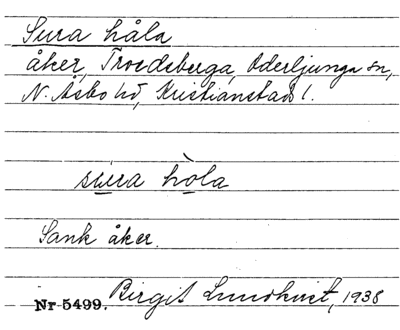 Sura håla
åker, Troedsberga, Oderljunga sn,
N. Åsbo hd, Kristianstads l.
sura hòla
Sank åker.
Nr 5499. Birgit Lundkvist, 1938